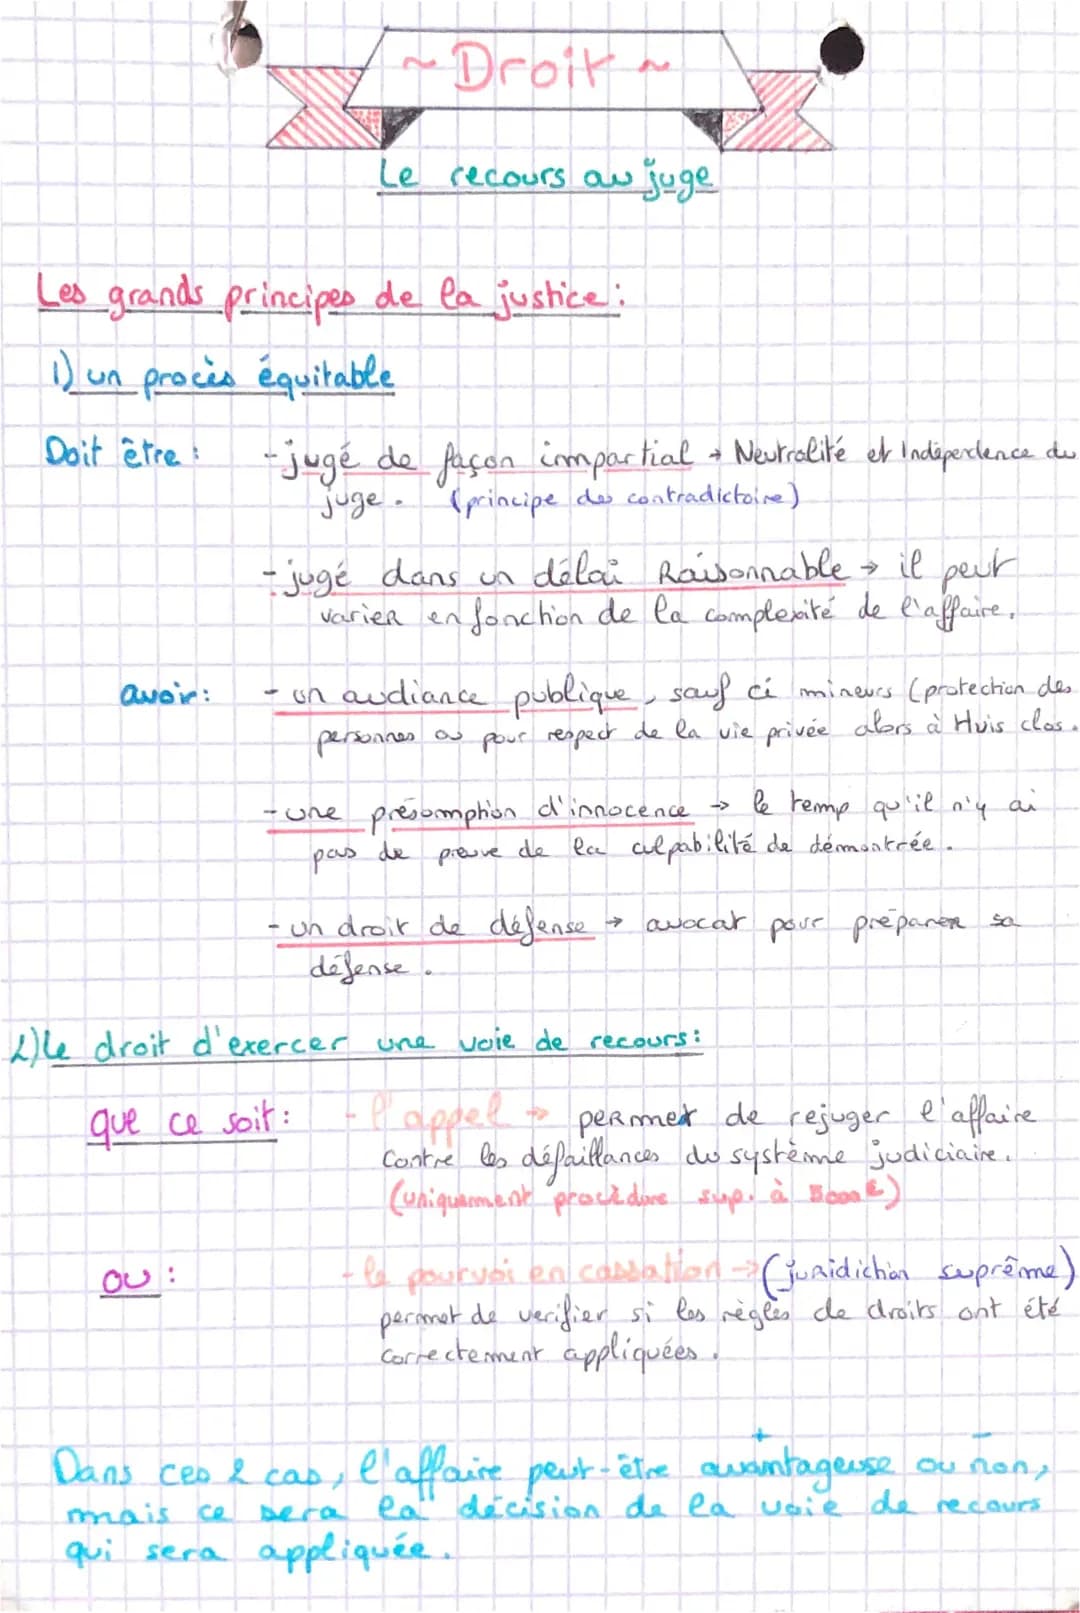 ~ Droit ~
Le recours au juge
Les grands principes de la justice :
1) un procès équitable
Doit être : - jugé de façon impartial → Neutralité et Indépendence du
juge. (principe des contradictoire)
- jugé dans un délai Raisonnable → il peut
varier en fonction de la complexité de l'affaire.
avoir : - un audiance publique, sauf ci mineurs (protection des
personnes ou pour respect de la vie privée alors à Huis clos.
- une présomption d'innocence → le temp qu'il n'y ai
pas de preuve de la culpabilité de démontrée.
- un droit de défense → avocat pour préparer sa
défense.
2) le droit d'exercer une voie de recours :
que ce soit : - l'appel → permet de rejuger l'affaire
contre les défaillances du système judiciaire.
(uniquement procédure sup. à 5000€)
ou : - le pourvoi en cassation → (juridiction suprême)
permet de verifier si les règles de droits ont été
correctement appliquées.
+ -
Dans ces 2 cas, l'affaire peut-être avantageuse ou non,
mais ce sera la décision de la voie de recours
qui sera appliquée.